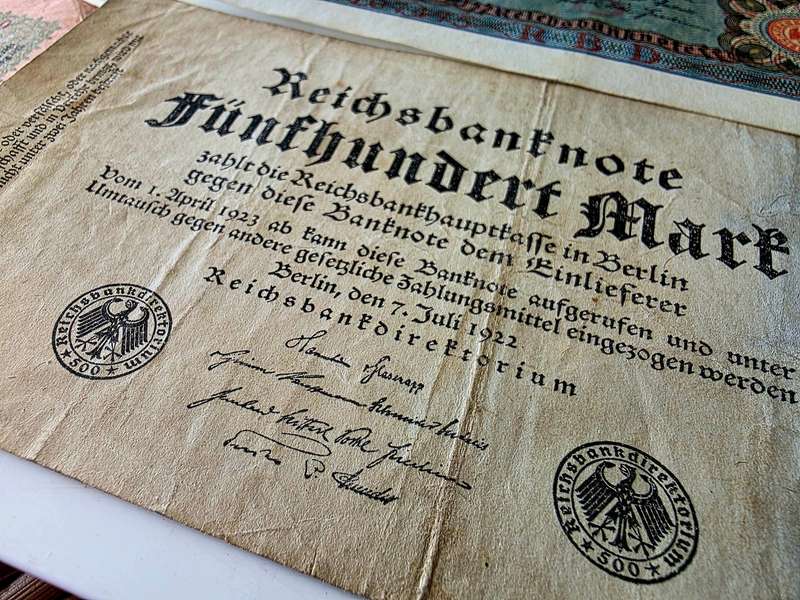 oder verfälscht, oder
schafft und in
nicht unter zwei Jahren
Reichsbanknote
Fünfhundert Mark
zahlt die Reichsbankhauptkasse in Berlin
gegen diese Banknote dem Einlieferer
Vom 1. April 1923 ab kann diese Banknote aufgerufen und unter
Umtausch gegen andere gesetzliche Zahlungsmittel eingezogen werden
Berlin, den 7. Juli 1922
Reichsbankdirektorium
Reichsbankdirektorium
500
Reichsbankdirektorium
500